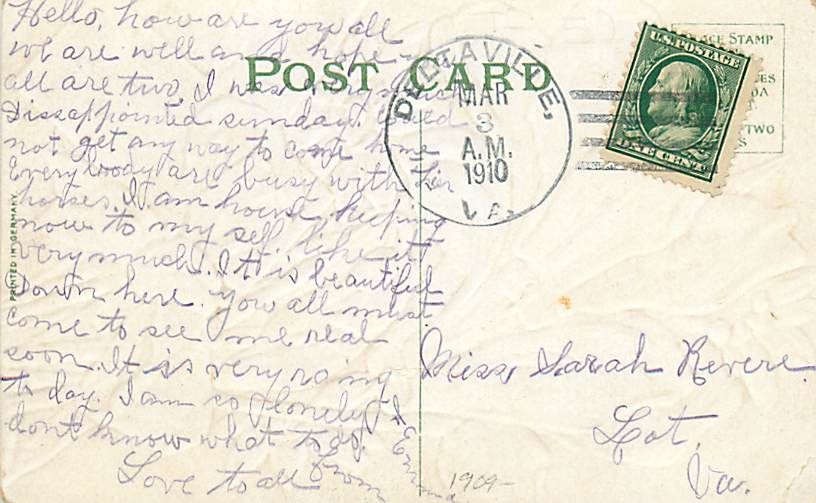 Hello, how are you all
we are well and hope
all are two, I was
Dissappointed sunday. Could
not get any way to come home
Every boody are busy with her
horses. I am house keeping
now to my self. like it
very much. It is beautiful
Down here. you all must
come to see me real
soon. It is very
to day. I am so lonely I
dont know what to do.
Love to all
From
Emma
POST CARD
DELTAVILLE,
MAR
3
A.M.
1910
VA.
U.S. POSTAGE
ONE CENT
STAMP
TWO
PRINTED IN GERMANY
Miss, Sarah Revere.
Lot
Va.
1909-